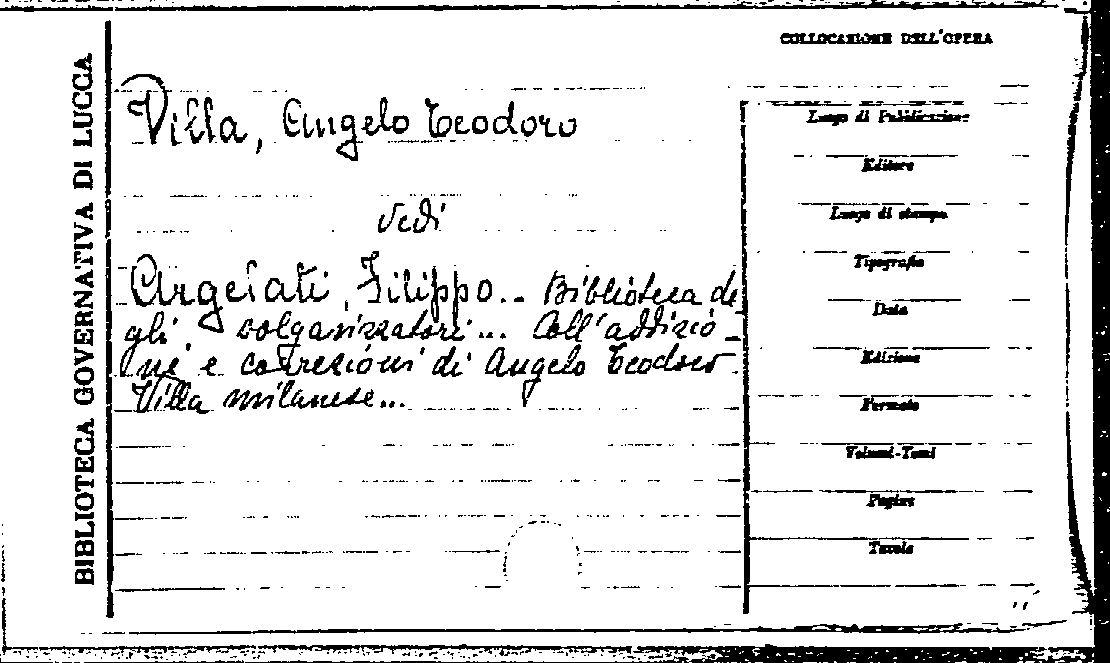 BIBLIOTECA GOVERNATIVA DI LUCCA
COLLOCAZIONE DELL'OPERA
Villa, Angelo Teodoro
vedi
Argelati, Filippo.. Biblioteca de
gli volgarizzatori... Coll'addizio_
ni e correzioni di Angelo Teodoro
Villa milanese...
Luogo di Pubblicazione
Editore
Luogo di stampa
Tipografia
Data
Edizione
Formato
Volumi-Tomi
Pagine
Tavole